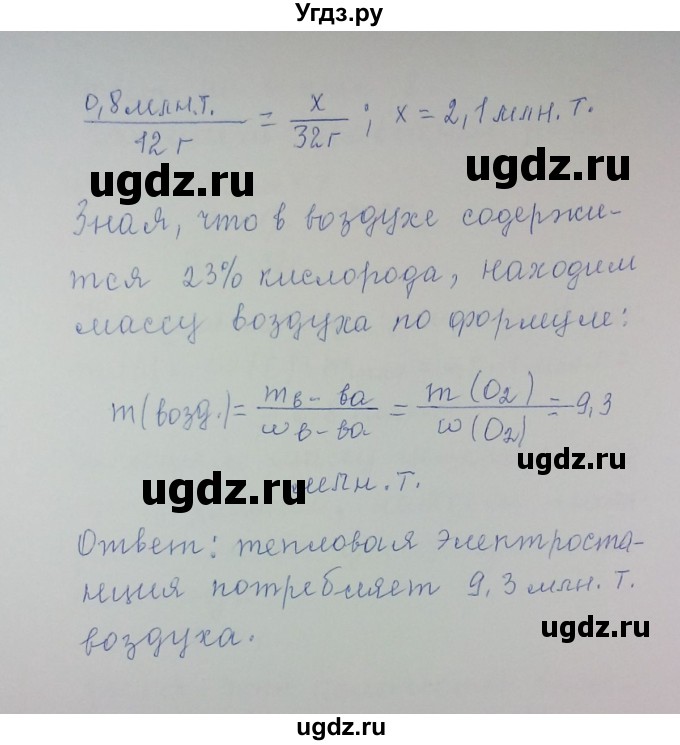 Угдз.ру
0,8 млн.т. / 12 г = x / 32 г ; x = 2,1 млн. т.
ugdz.ru ugdz.ru
Зная, что в воздухе содержи-
тся 23% кислорода, находим
массу воздуха по формуле:
m(возд.) = m в-ва / ω в-ва = m (O₂) / ω (O₂) = 9,3
ugdz.ru ugdz.ru
млн. т.
Ответ: тепловая электроста-
нция потребляет 9,3 млн. т.
ugdz.ru
воздуха.
ugdz.ru